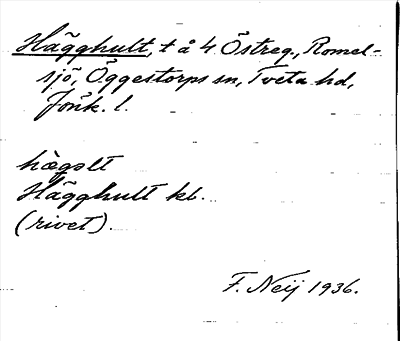 Hägghult, t å 4 Östreg., Romel-
sjö, Öggestorps sn, Tveta hd,
Jönk. l.
hægølt
Hägghult kl.
(rivet).
F. Neij 1936.